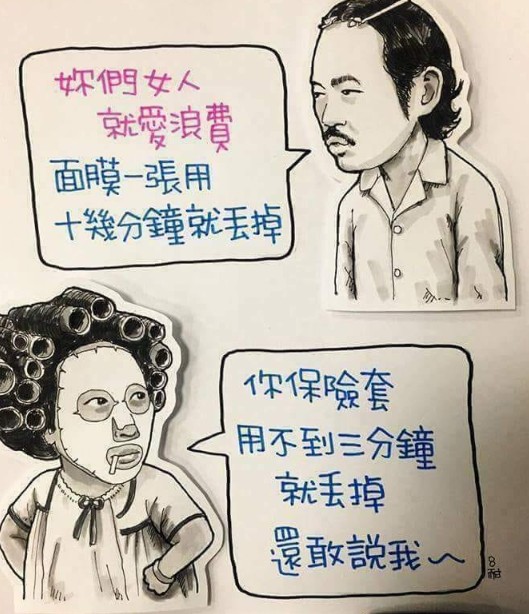 妳們女人
就愛浪費
面膜一張用
十幾分鐘就丟掉
你保險套
用不到三分鐘
就丟掉
還敢說我~